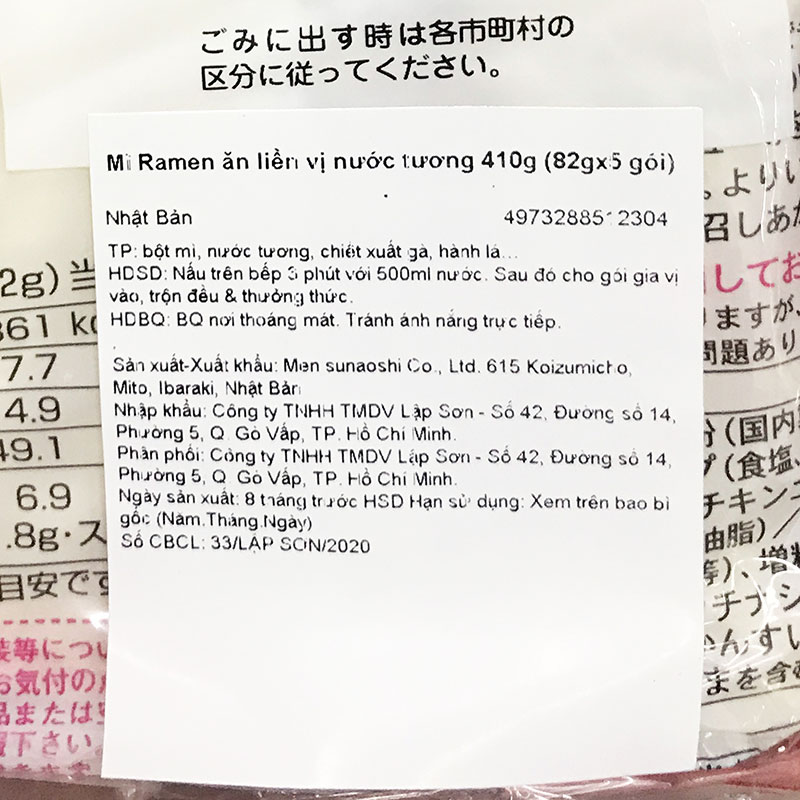 ごみに出す時は各市町村の
区分に従ってください。
Mì Ramen ăn liền vị nước tương 410g (82gx5 gói)
Nhật Bản 4973288512304
TP: bột mì, nước tương, chiết xuất gà, hành lá...
HDSD: Nấu trên bếp 3 phút với 500ml nước. Sau đó cho gói gia vị
vào, trộn đều & thưởng thức.
HDBQ: BQ nơi thoáng mát. Tránh ánh nắng trực tiếp.
Sản xuất-Xuất khẩu: Men sunaoshi Co., Ltd. 615 Koizumicho,
Mito, Ibaraki, Nhật Bản
Nhập khẩu: Công ty TNHH TMDV Lập Sơn - Số 42, Đường số 14,
Phường 5, Q. Gò Vấp, TP. Hồ Chí Minh.
Phân phối: Công ty TNHH TMDV Lập Sơn - Số 42, Đường số 14,
Phường 5, Q. Gò Vấp, TP. Hồ Chí Minh.
Ngày sản xuất: 8 tháng trước HSD Hạn sử dụng: Xem trên bao bì
gốc (Năm.Tháng.Ngày)
Số CBCL: 33/LẬP SƠN/2020
2g) 当
361
7.7
4.9
49.1
6.9
.8g・ス
目安です
装等につい
お気付の
品または
下さい
。よりい
召しあ
してお
りますが、
問題あり
(国内
(食塩、
チキン
油脂)/
等)、増
チナシ
かんすい
まを含む